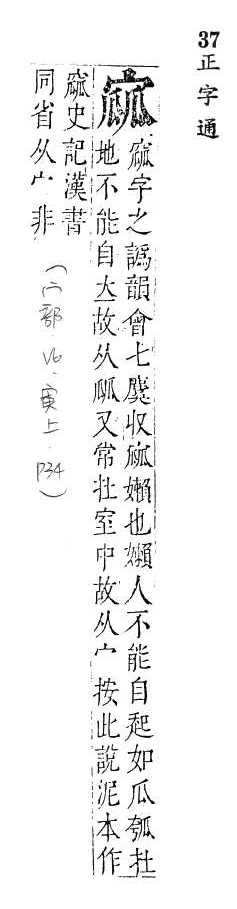 37正字通
寙
窳字之譌韻會七麌收寙嬾也嬾人不能自起如瓜瓠在
地不能自立故从㼌又常在室中故从宀按此說泥本作
窳史記漢書
同省从宀非
(宀部 V6.寅上.P34)